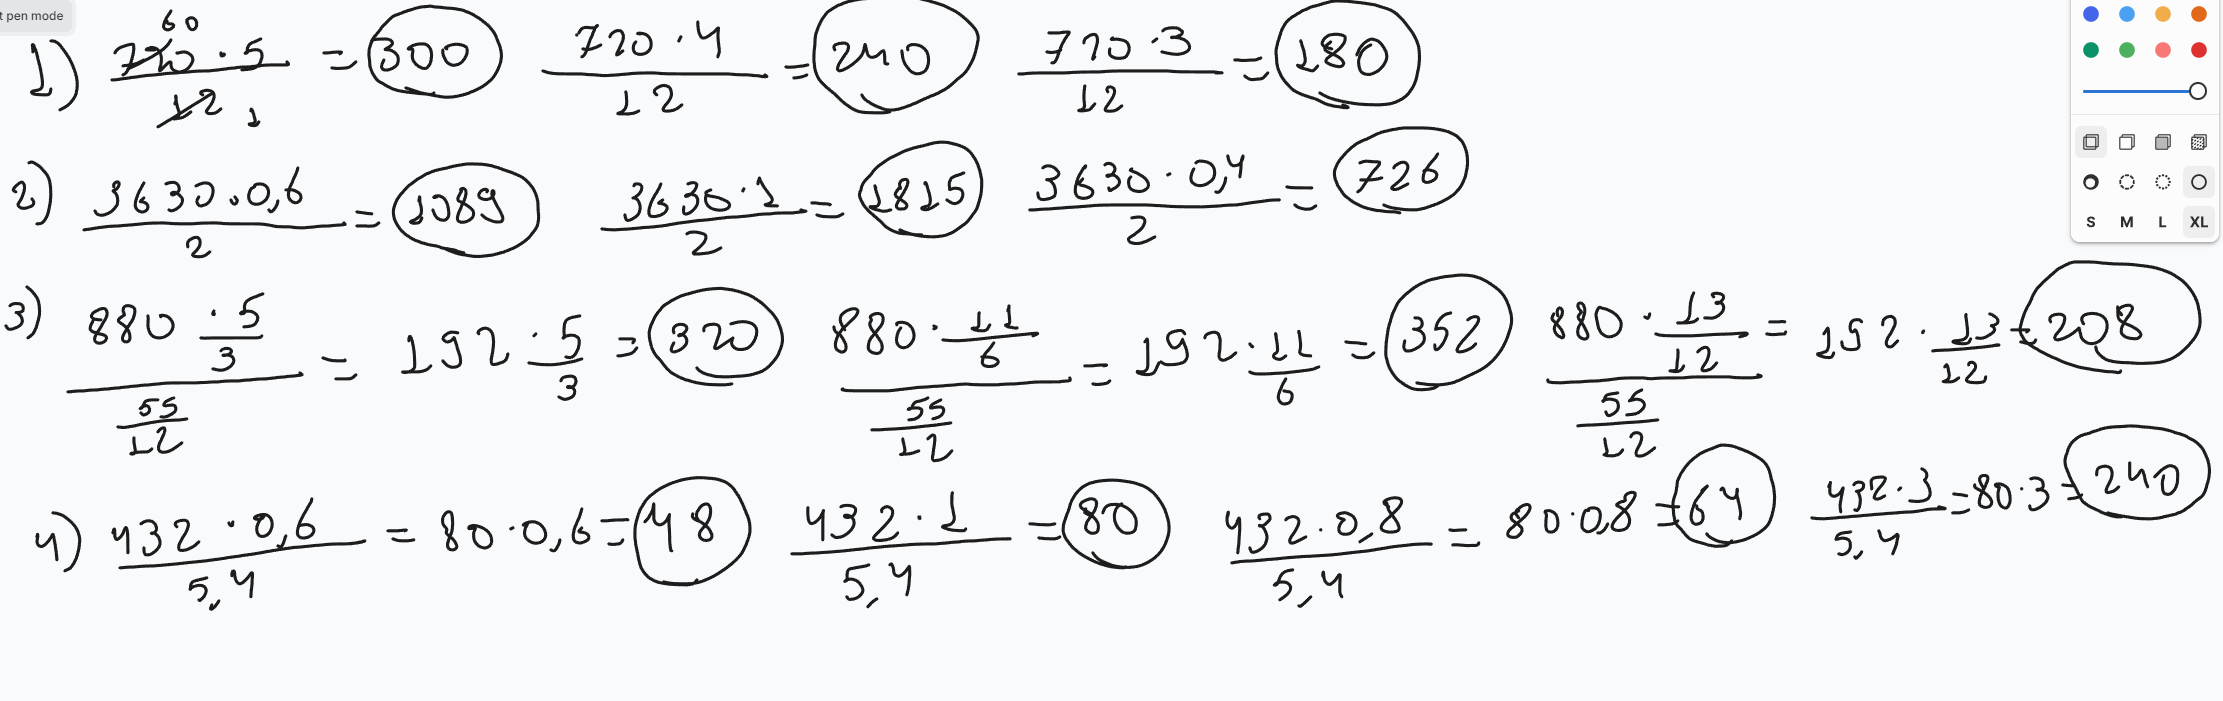 t pen mode
60
1) 720 · 5 / 12 1 = 300   720 · 4 / 12 = 240   720 · 3 / 12 = 180
2) 3630 · 0,6 / 2 = 1089   3630 · 1 / 2 = 1815   3630 · 0,4 / 2 = 726
3) 880 · 5/3 / 55/12 = 192 · 5/3 = 320   880 · 11/6 / 55/12 = 192 · 11/6 = 352   880 · 13/12 / 55/12 = 192 · 13/12 = 208
4) 432 · 0,6 / 5,4 = 80 · 0,6 = 48   432 · 1 / 5,4 = 80   432 · 0,8 / 5,4 = 80 · 0,8 = 64   432 · 3 / 5,4 = 80 · 3 = 240
S M L XL